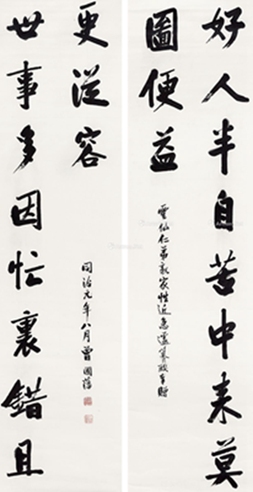 好人半自苦中来莫
圖便益
雲仙仁弟親家性近急遽奉贈
世事多因忙裏錯且
更從容
同治元年八月曾國藩